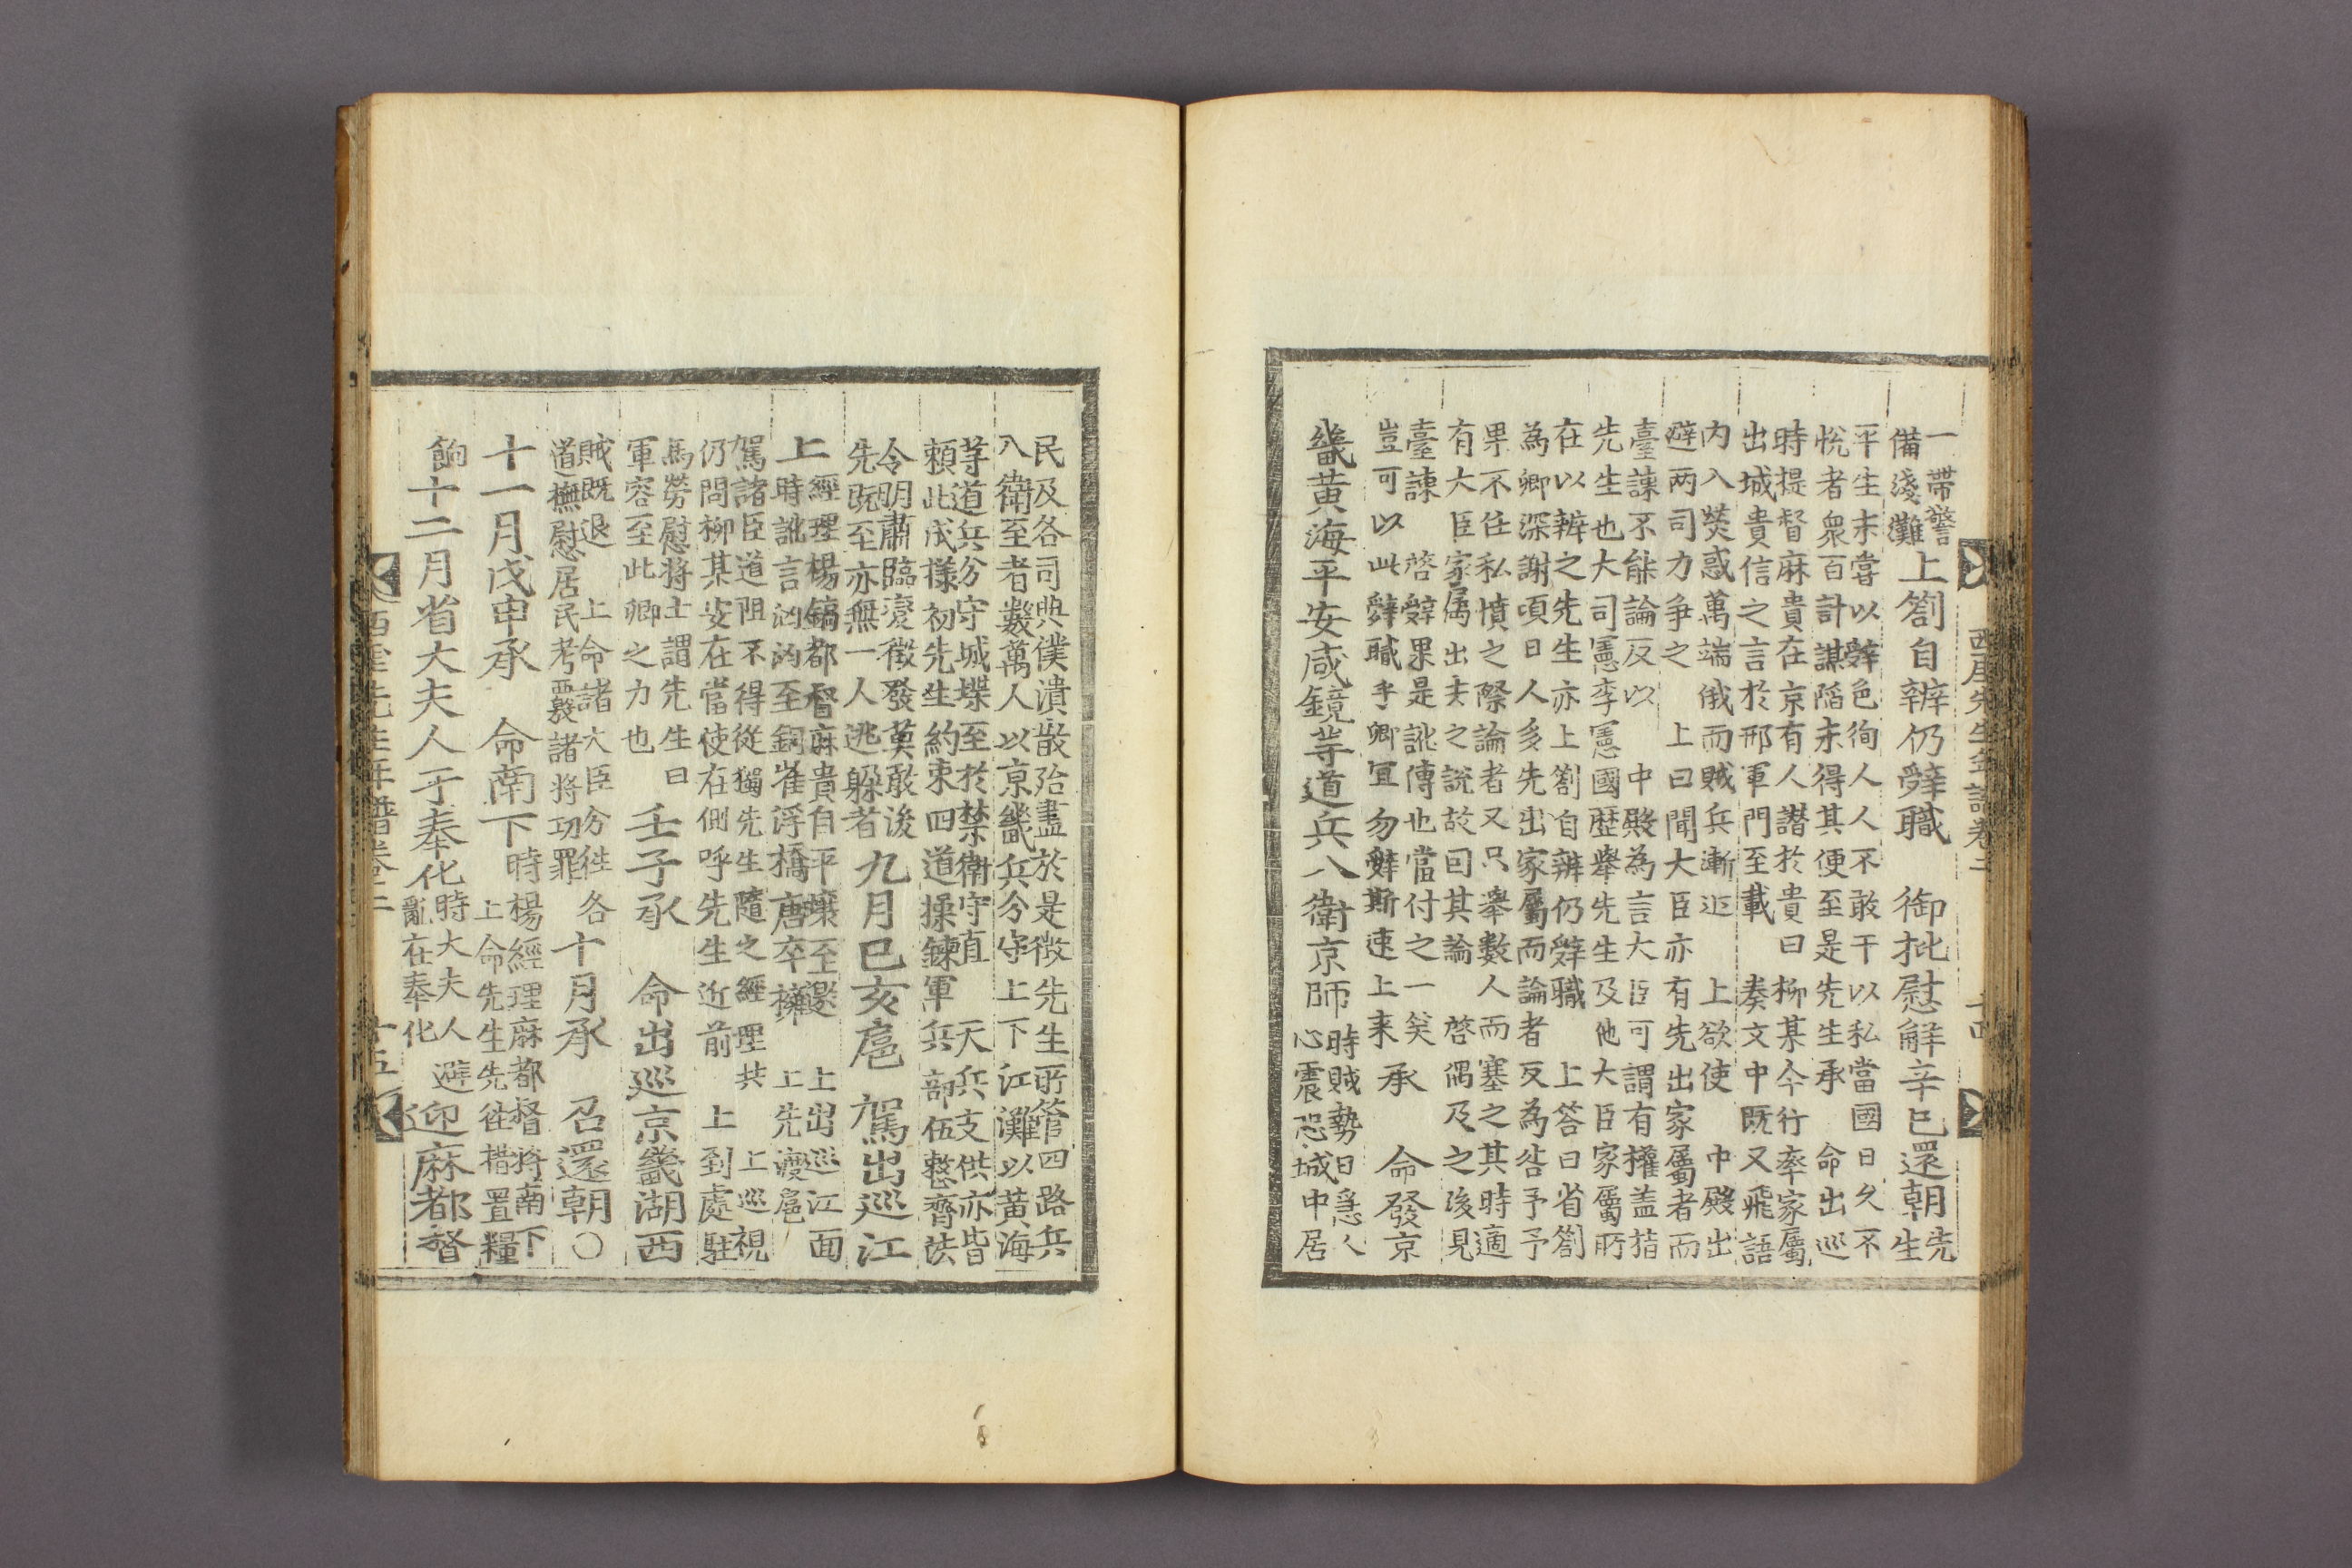 西厓先生年譜卷二 十四
一帶警
備淺灘
上劄自辨仍辭職 御批慰解辛巳還朝
先
生
平生未嘗以辭色徇人人不敢干以私當國日久不
悅者衆百計謀陷未得其便至是先生承 命出巡
時提督麻貴在京有人譖於貴曰柳某今行率家屬
出城貴信之言於邢軍門至載 奏文中旣又飛語
內入熒惑萬端俄而賊兵漸近 上欲使 中殿出
避两司力爭之 上曰聞大臣亦有先出家屬者而
臺諫不能論反以 中殿為言大臣可謂有權盖指
先生也大司憲李憲國歷舉先生及他大臣家屬所
在以辨之先生亦上劄自辨仍辭職 上答曰省劄
為卿深謝頃日人多先出家屬而論者反為咎予予
果不任私憤之際論者又只舉數人而塞之其時適
有大臣家属出去之說故回其論 啓偶及之後見
臺諫 啓辭果是訛傳也當付之一笑
豈可以此辭職乎卿宜勿辭斯速上来
承 命發京
畿黃海平安咸鏡等道兵入衛京師
時賊勢日急人
心震恐城中居
民及各司典僕潰散殆盡於是徴先生所管四路兵
入衛至者數萬人以京畿兵分守上下江灘以黃海
等道兵分守城堞至於禁衛守直 天兵支供亦皆
賴此成㨾初先生約束四道操鍊軍兵部伍整齊法
令明肅臨變徴發莫敢後
先旣至亦無一人逃躱者
九月己亥扈 駕出巡江
上
經理楊鎬都督麻貴自平壤至邀 上出巡江面
時訛言洶洶至銅雀浮橋唐卒擁 上先渡扈
駕諸臣道阻不得從獨先生隨之經理共 上巡視
仍問柳某安在當使在側呼先生近前 上到處駐
馬勞慰將士謂先生曰
軍容至此卿之力也
壬子承 命出巡京畿湖西
賊旣退 上命諸大臣分徃各
道撫慰居民考覈諸將功罪
十月承 召還朝〇
十一月戊申承 命南下
時楊經理麻都督將南下
上命先生先徃措置糧
餉
十二月省大夫人于奉化
時大夫人避
亂在奉化
迎麻都督
西厓先生年譜卷二 十五